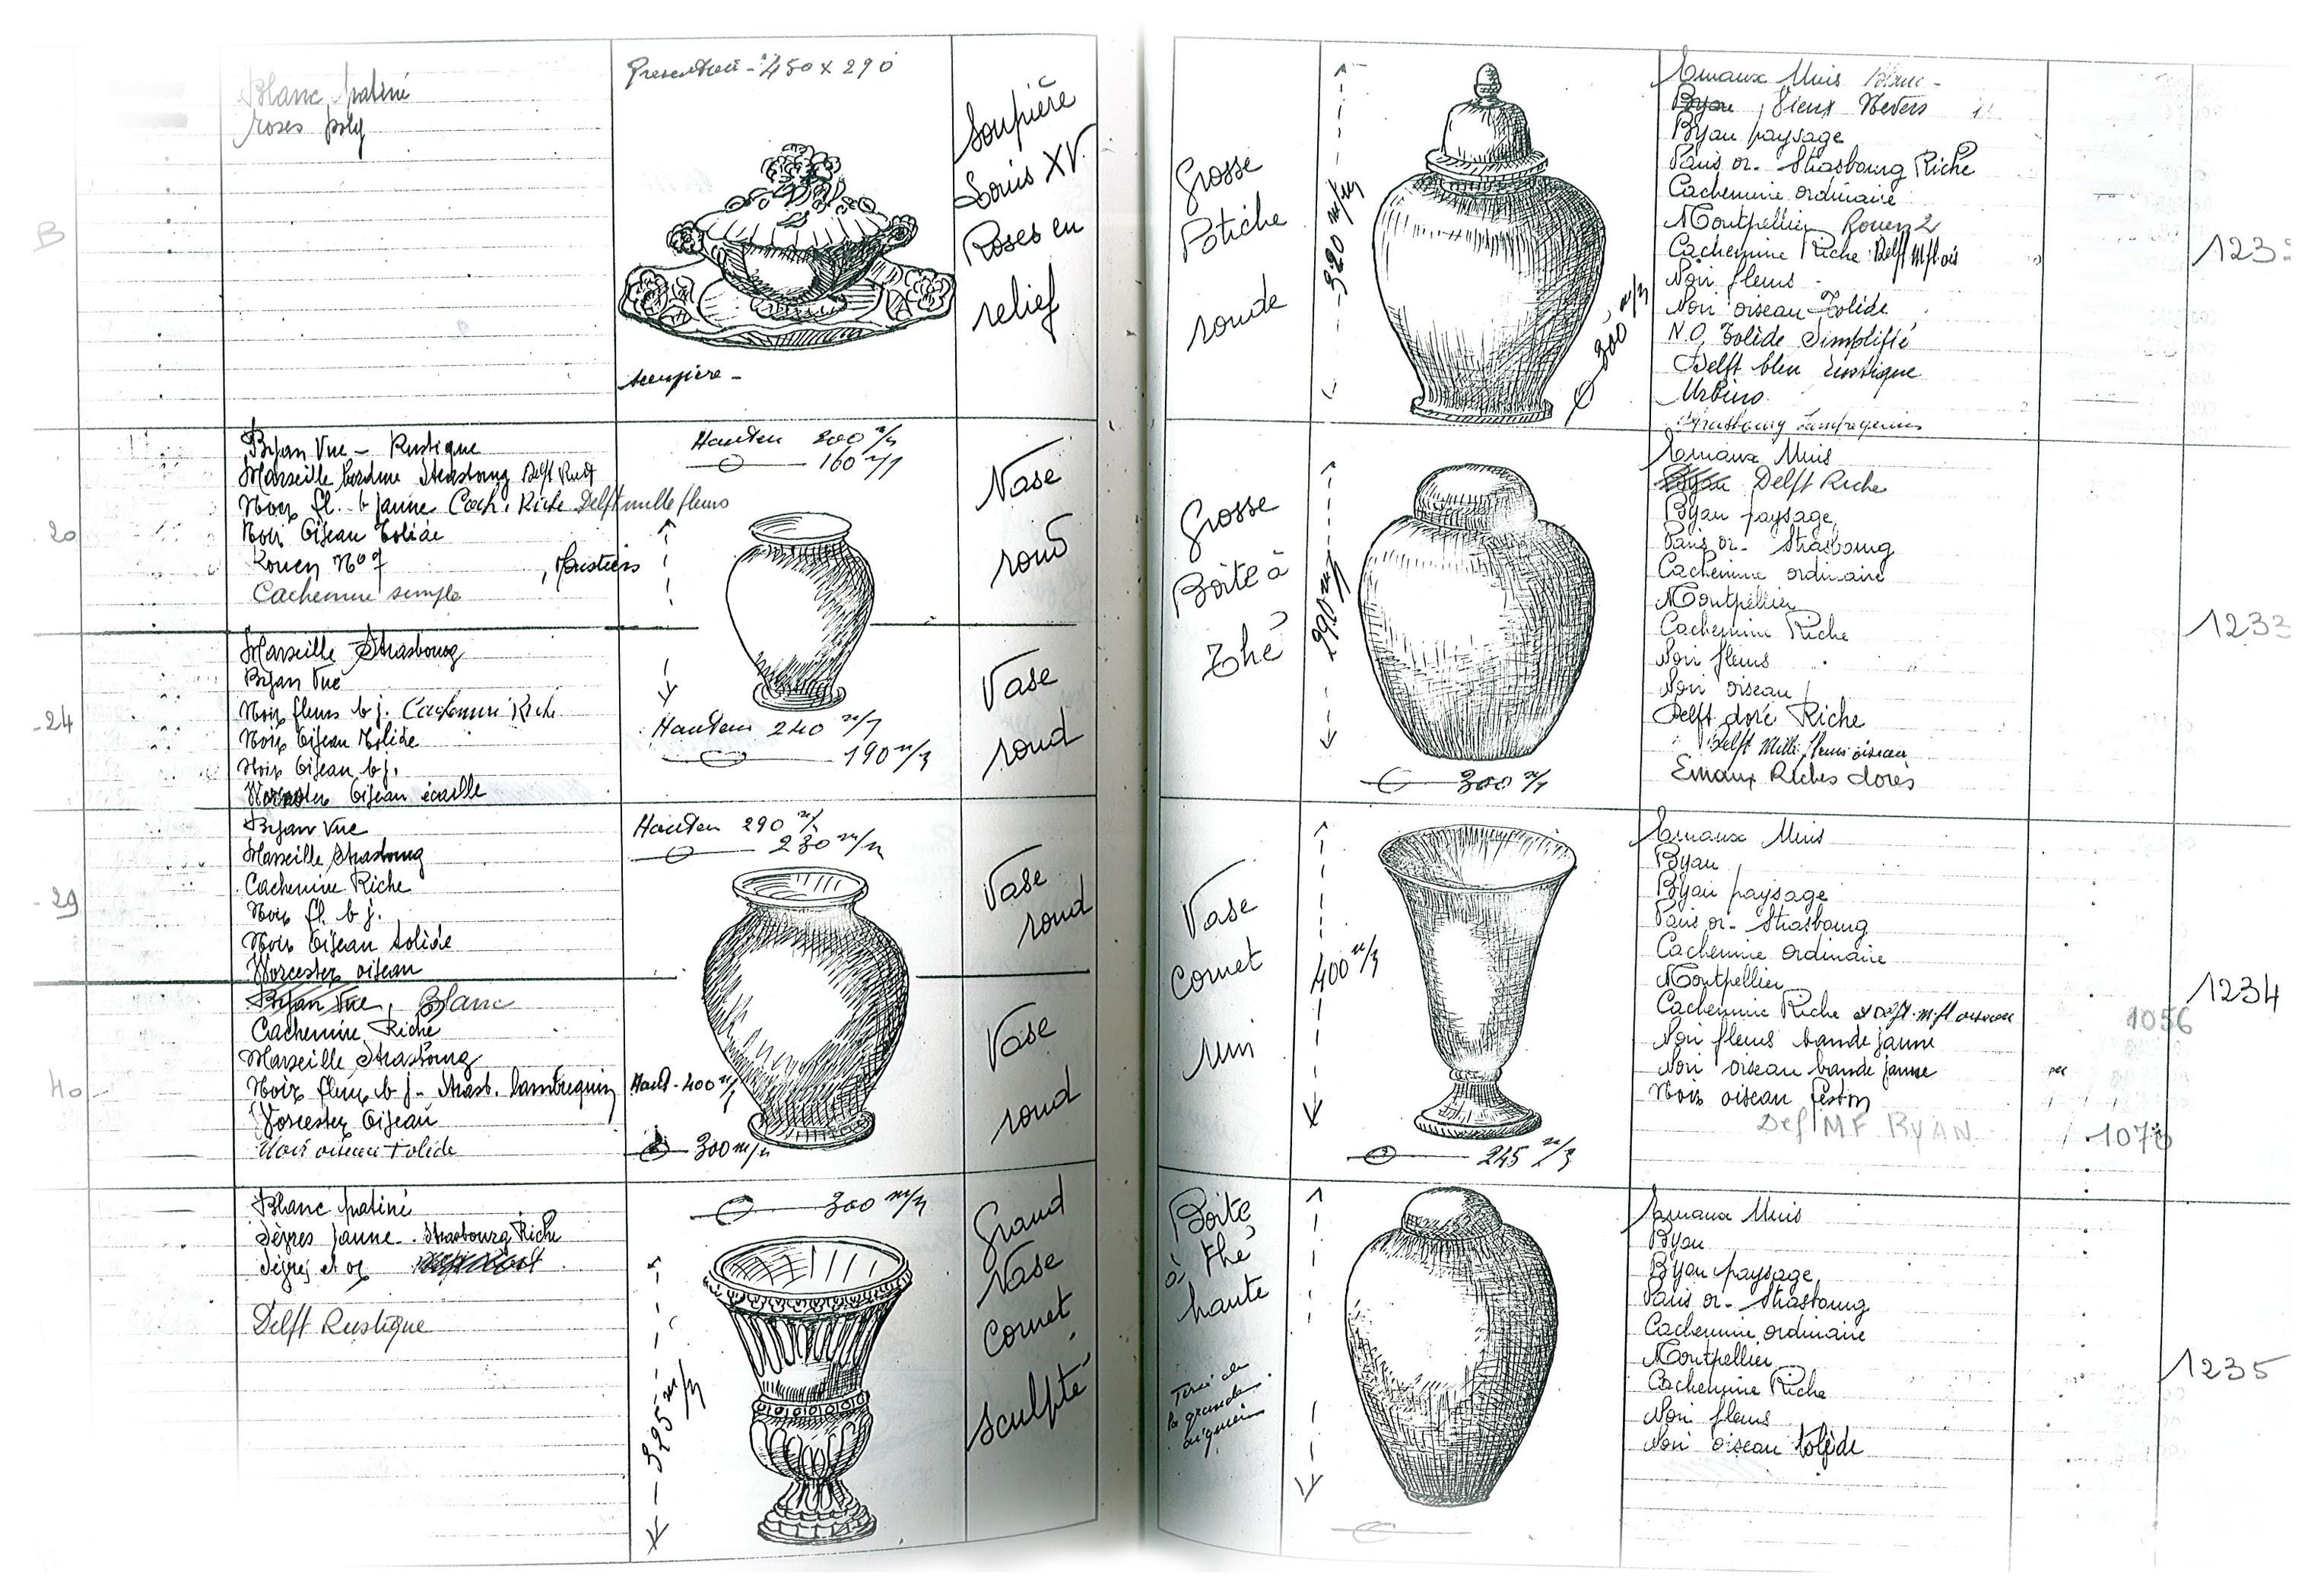 B
Blanc patiné
roses poly
Presentoir - 450 x 290
soupière -
Soupière
Louis XV
Roses en
relief
20
Byan Vue - Rustique
Marseille bordure Strasbourg Delft Rust
Noir fl. b jaune Cach. Riche Delft mille fleurs
Noir Oiseau Tolède
Rouen No 7 , Moustiers
Cachemire simple
Hauteur 200 m/m
160 m/m
Vase
rond
24
Marseille Strasbourg
Byan Vue
Noir fleurs b j. Cachemire Riche
Noir Oiseau Tolède
Noir Oiseau b j.
Worcester Oiseau écaille
Hauteur 240 m/m
190 m/m
Vase
rond
29
Byan Vue
Marseille Strasbourg
Cachemire Riche
Noir fl. b j.
Noir Oiseau tolède
Worcester oiseau
Hauteur 290 m/m
230 m/m
Vase
rond
40
Byan Vue, Blanc
Cachemire Riche
Marseille Strasbourg
Noir fleurs b j - Strasb. lambrequin
Worcester Oiseau
Noir oiseau tolède
Haut - 400 m/m
300 m/m
Vase
rond
Blanc patiné
Sèvres jaune - Strasbourg Riche
Sèvres et or
Delft Rustique
300 m/m
325 m/m
Grand
Vase
Cornet
sculpté
Grosse
Potiche
ronde
520 m/m
300 m/m
Emaux Unis Blanc -
Byan, Vieux Nevers
Byan paysage
Paris or - Strasbourg Riche
Cachemire ordinaire
Montpellier Rouen 2
Cachemire Riche Delft M fl ois
Noir fleurs
Noir oiseau Tolède
N.O. Tolède Simplifié
Delft bleu rustique
Urbino
Strasbourg Lambrequins
Grosse
Boite à
Thé
290 m/m
300 m/m
Emaux Unis
Byan Delft Riche
Byan paysage
Paris or - Strasbourg
Cachemire ordinaire
Montpellier
Cachemire Riche
Noir fleurs
Noir oiseau
Delft doré Riche
Delft Mille fleurs oiseau
Emaux Riches dorés
1233
Vase
Cornet
uni
400 m/m
245 m/m
Emaux Unis
Byan
Byan paysage
Paris or - Strasbourg
Cachemire ordinaire
Montpellier
Cachemire Riche et Delft m fl oiseau
Noir fleurs bande jaune
Noir oiseau bande jaune
Noir oiseau feston
Delf MF BYAN
1056
1234
Boite
à thé
haute
Tirée de
la grande
Emaux Unis
Byan
Byan paysage
Paris or - Strasbourg
Cachemire ordinaire
Montpellier
Cachemire Riche
Noir fleurs
Noir oiseau tolède
1235